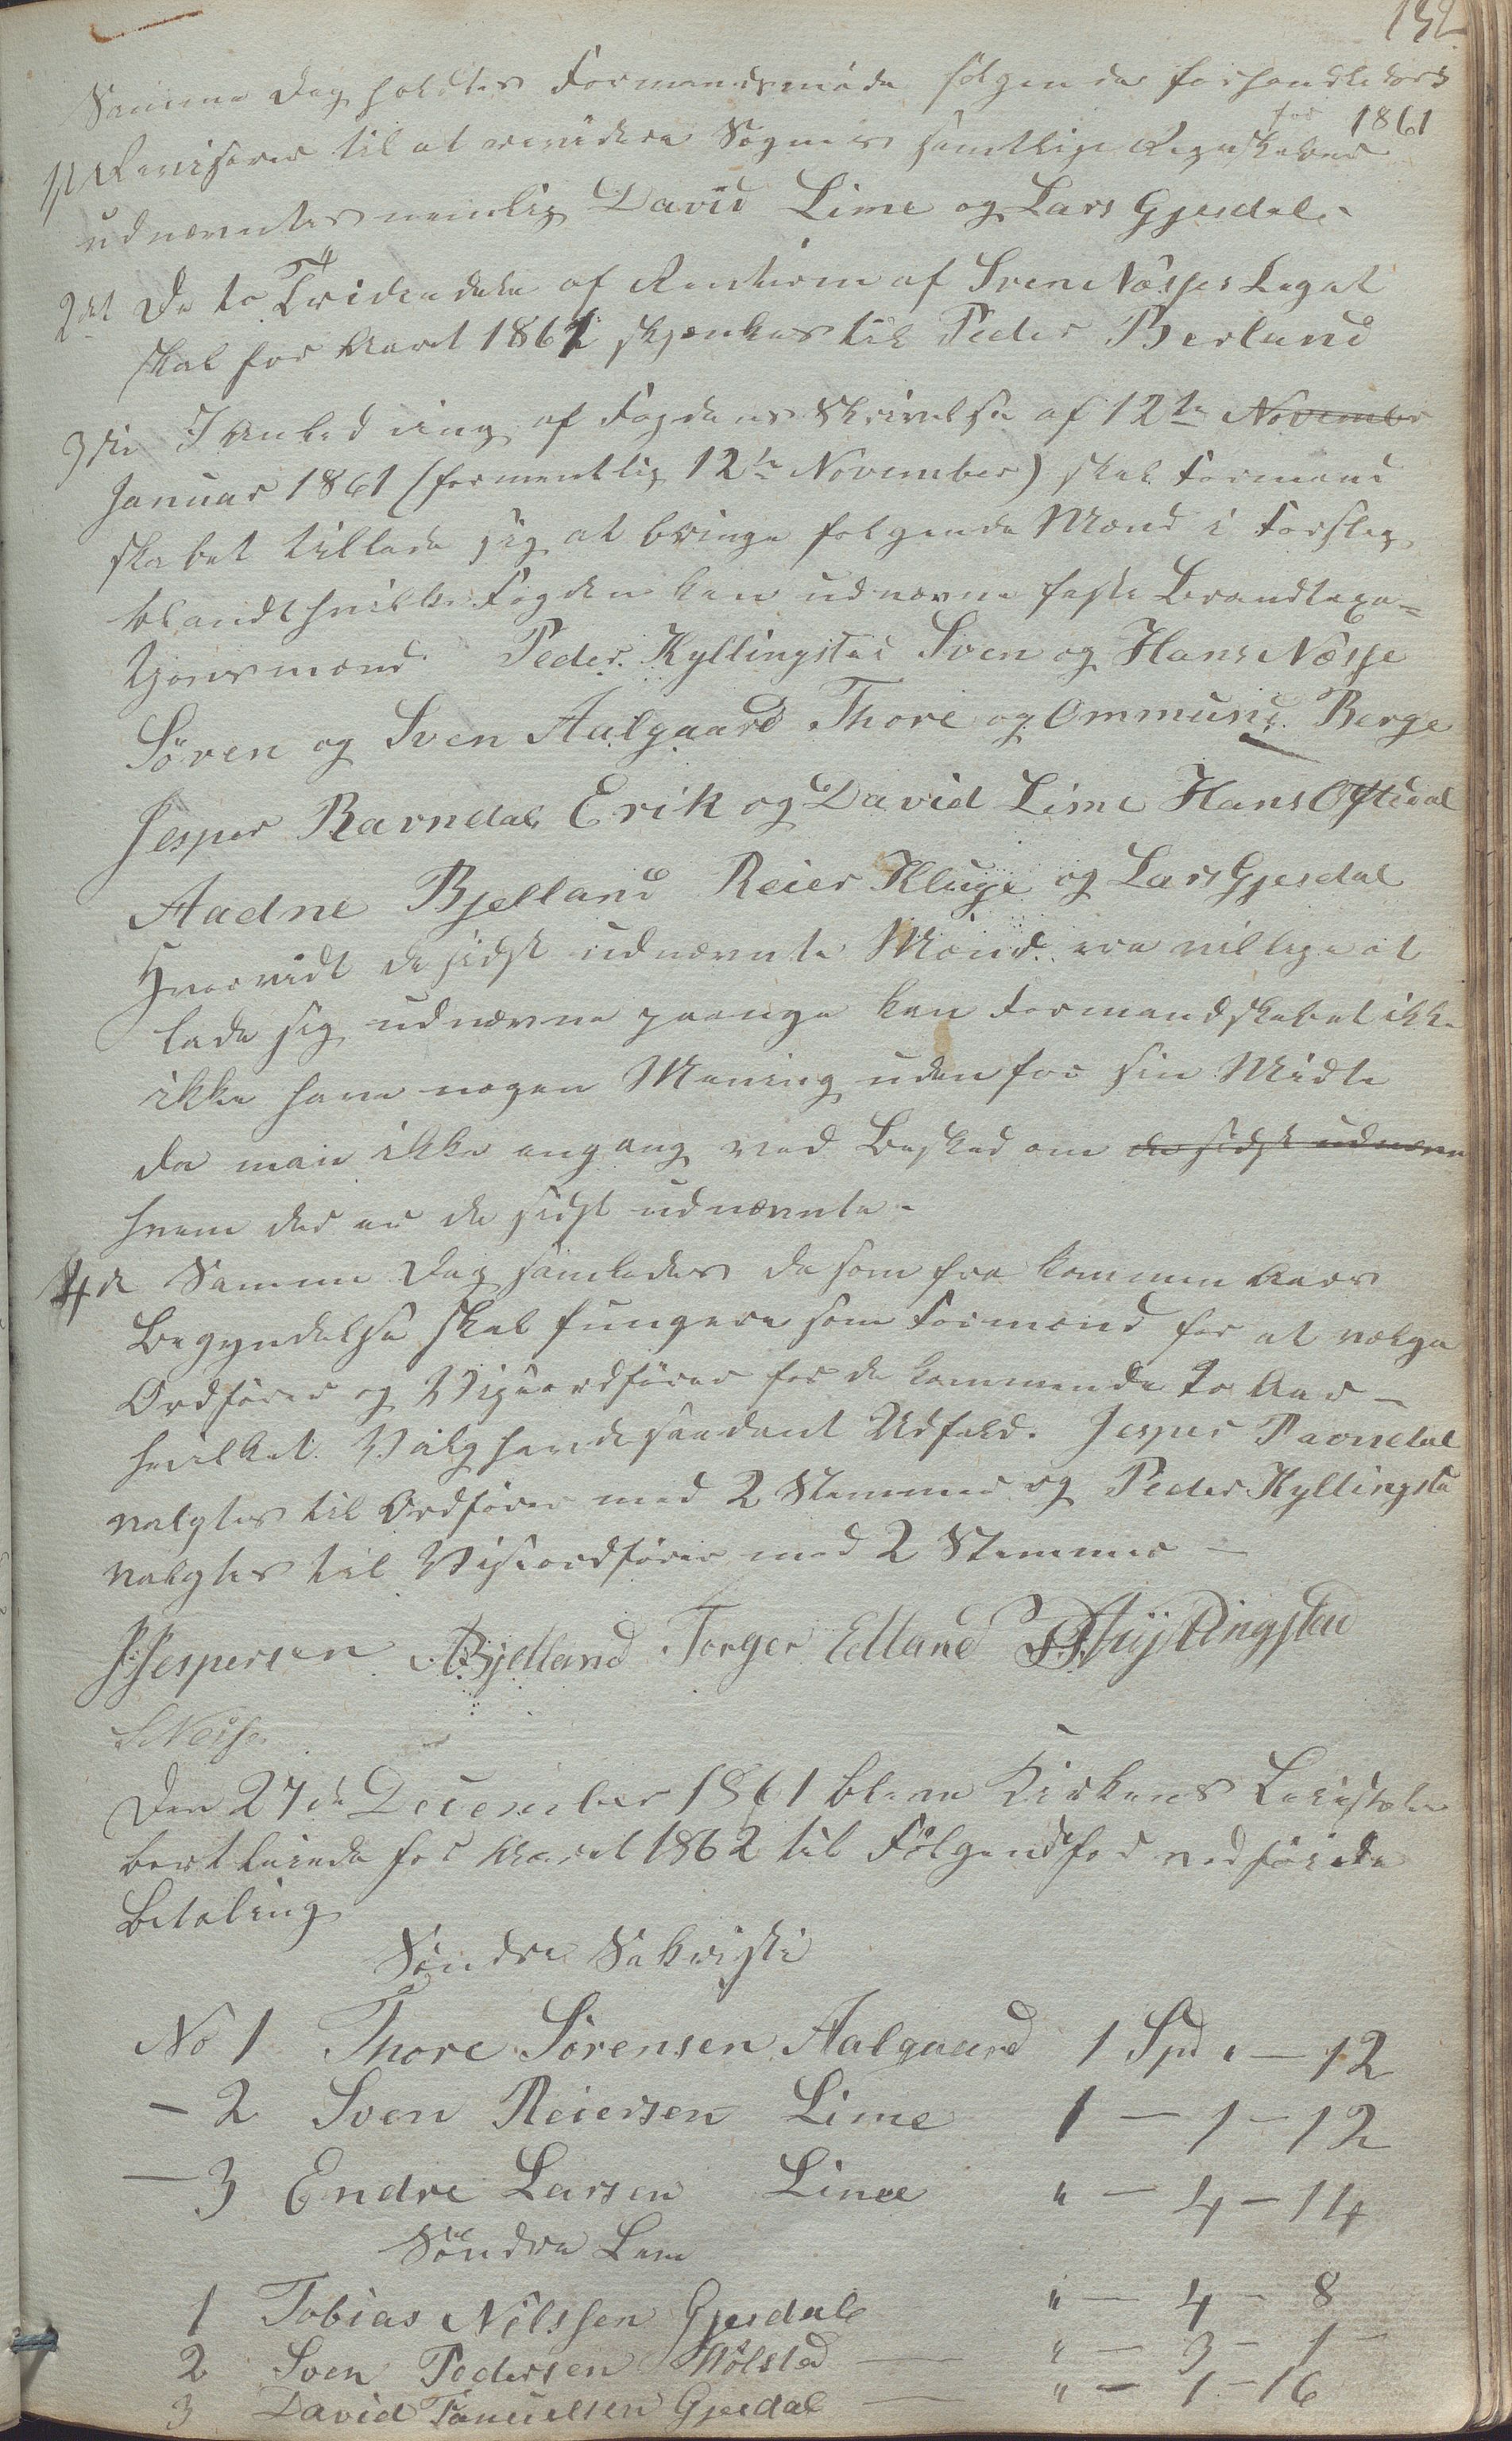 152
Samme Dag holdtes Formandsmöde fölgende forhandledes
1/ Revisorer til at revidere Sognets samtlige Regnskaber for 1861
udnævntes nemlig David Lime og Lars Gjesdal.
2det De to Trediedele af Renterne af Sven Næsses Legat
skal for Aaret 1861 skjænkes til Peder Berland
3die I Anledning af Fogdens Skrivelse af 12te Novembr
Januar 1861 (formentlig 12te November) skal Formand
skabet tillade sig at bringe følgende Mænd i Forslag
blandt hvilke Fogden kan udnævne faste Brandtaxa=
tjonsmænd. Peder Kyllingstad Sven og Hans Næsse
Sören og Sven Aalgaard Thore og Ommund Berge
Jesper Ravndal Erik og David Lime Hans Oftedal
Aadne Bjelland Reier Kluge og Lars Gjesdal
Hvorvidt de sidst udnævnte Mænd ere villige at
lade sig udnævne paanye kan Formandskabet ikke
ikke have nogen Mening uden for sin Midte
da man ikke engang ved Besked om de sidst udnævn
hvem der er de sidst udnævnte.
4de Samme Dag samledes de som fra kommen Aars
Begyndelse skal fungere som Formænd for at vælge
Ordförer og Viseordförer for de kommende to Aar —
hvilket Valg havde saadant Udfald. Jesper Ravndal
valgtes til Ordförer med 2 Stemmer og Peder Kyllingsta
valgtes til Viseordförer med 2 Stemmer —
J. Jespersen A Bjelland Torger Edland P. Kyllingstad
S Næsse
Den 27de December 1861 bleve Kirkens
bortleiede for Aaret 1862 til Fölgende for vedföiede
Betaling
Söndre Sakristi
No 1 Thore Sörensen Aalgaard 1 Spd " — 12
— 2 Sven Reiersen Lime 1 — 1 — 12
— 3 Endre Larsen Lime " — 4 — 14
Söndre Lem
1 Tobias Nilssen Gjesdal " — 4 — 8
2 Sven Pedersen Kölstad — " — 3 — 1 —
3 David Samuelsen Gjesdal — " — 1 — 16